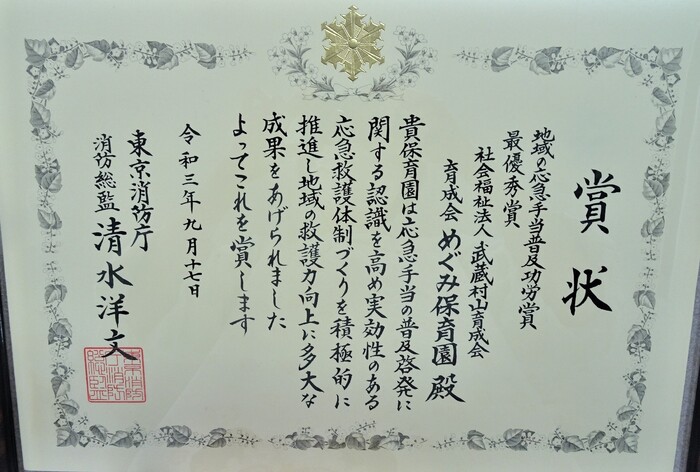 賞状
地域の応急手当普及功労賞
最優秀賞
社会福祉法人武蔵村山育成会
育成会めぐみ保育園殿
貴保育園は応急手当の普及啓発に
関する認識を高め実効性のある
応急救護体制づくりを積極的に
推進し地域の救護力向上に多大な
成果をあげられました
よってこれを賞します
令和三年九月十七日
東京消防庁
消防総監清水洋文